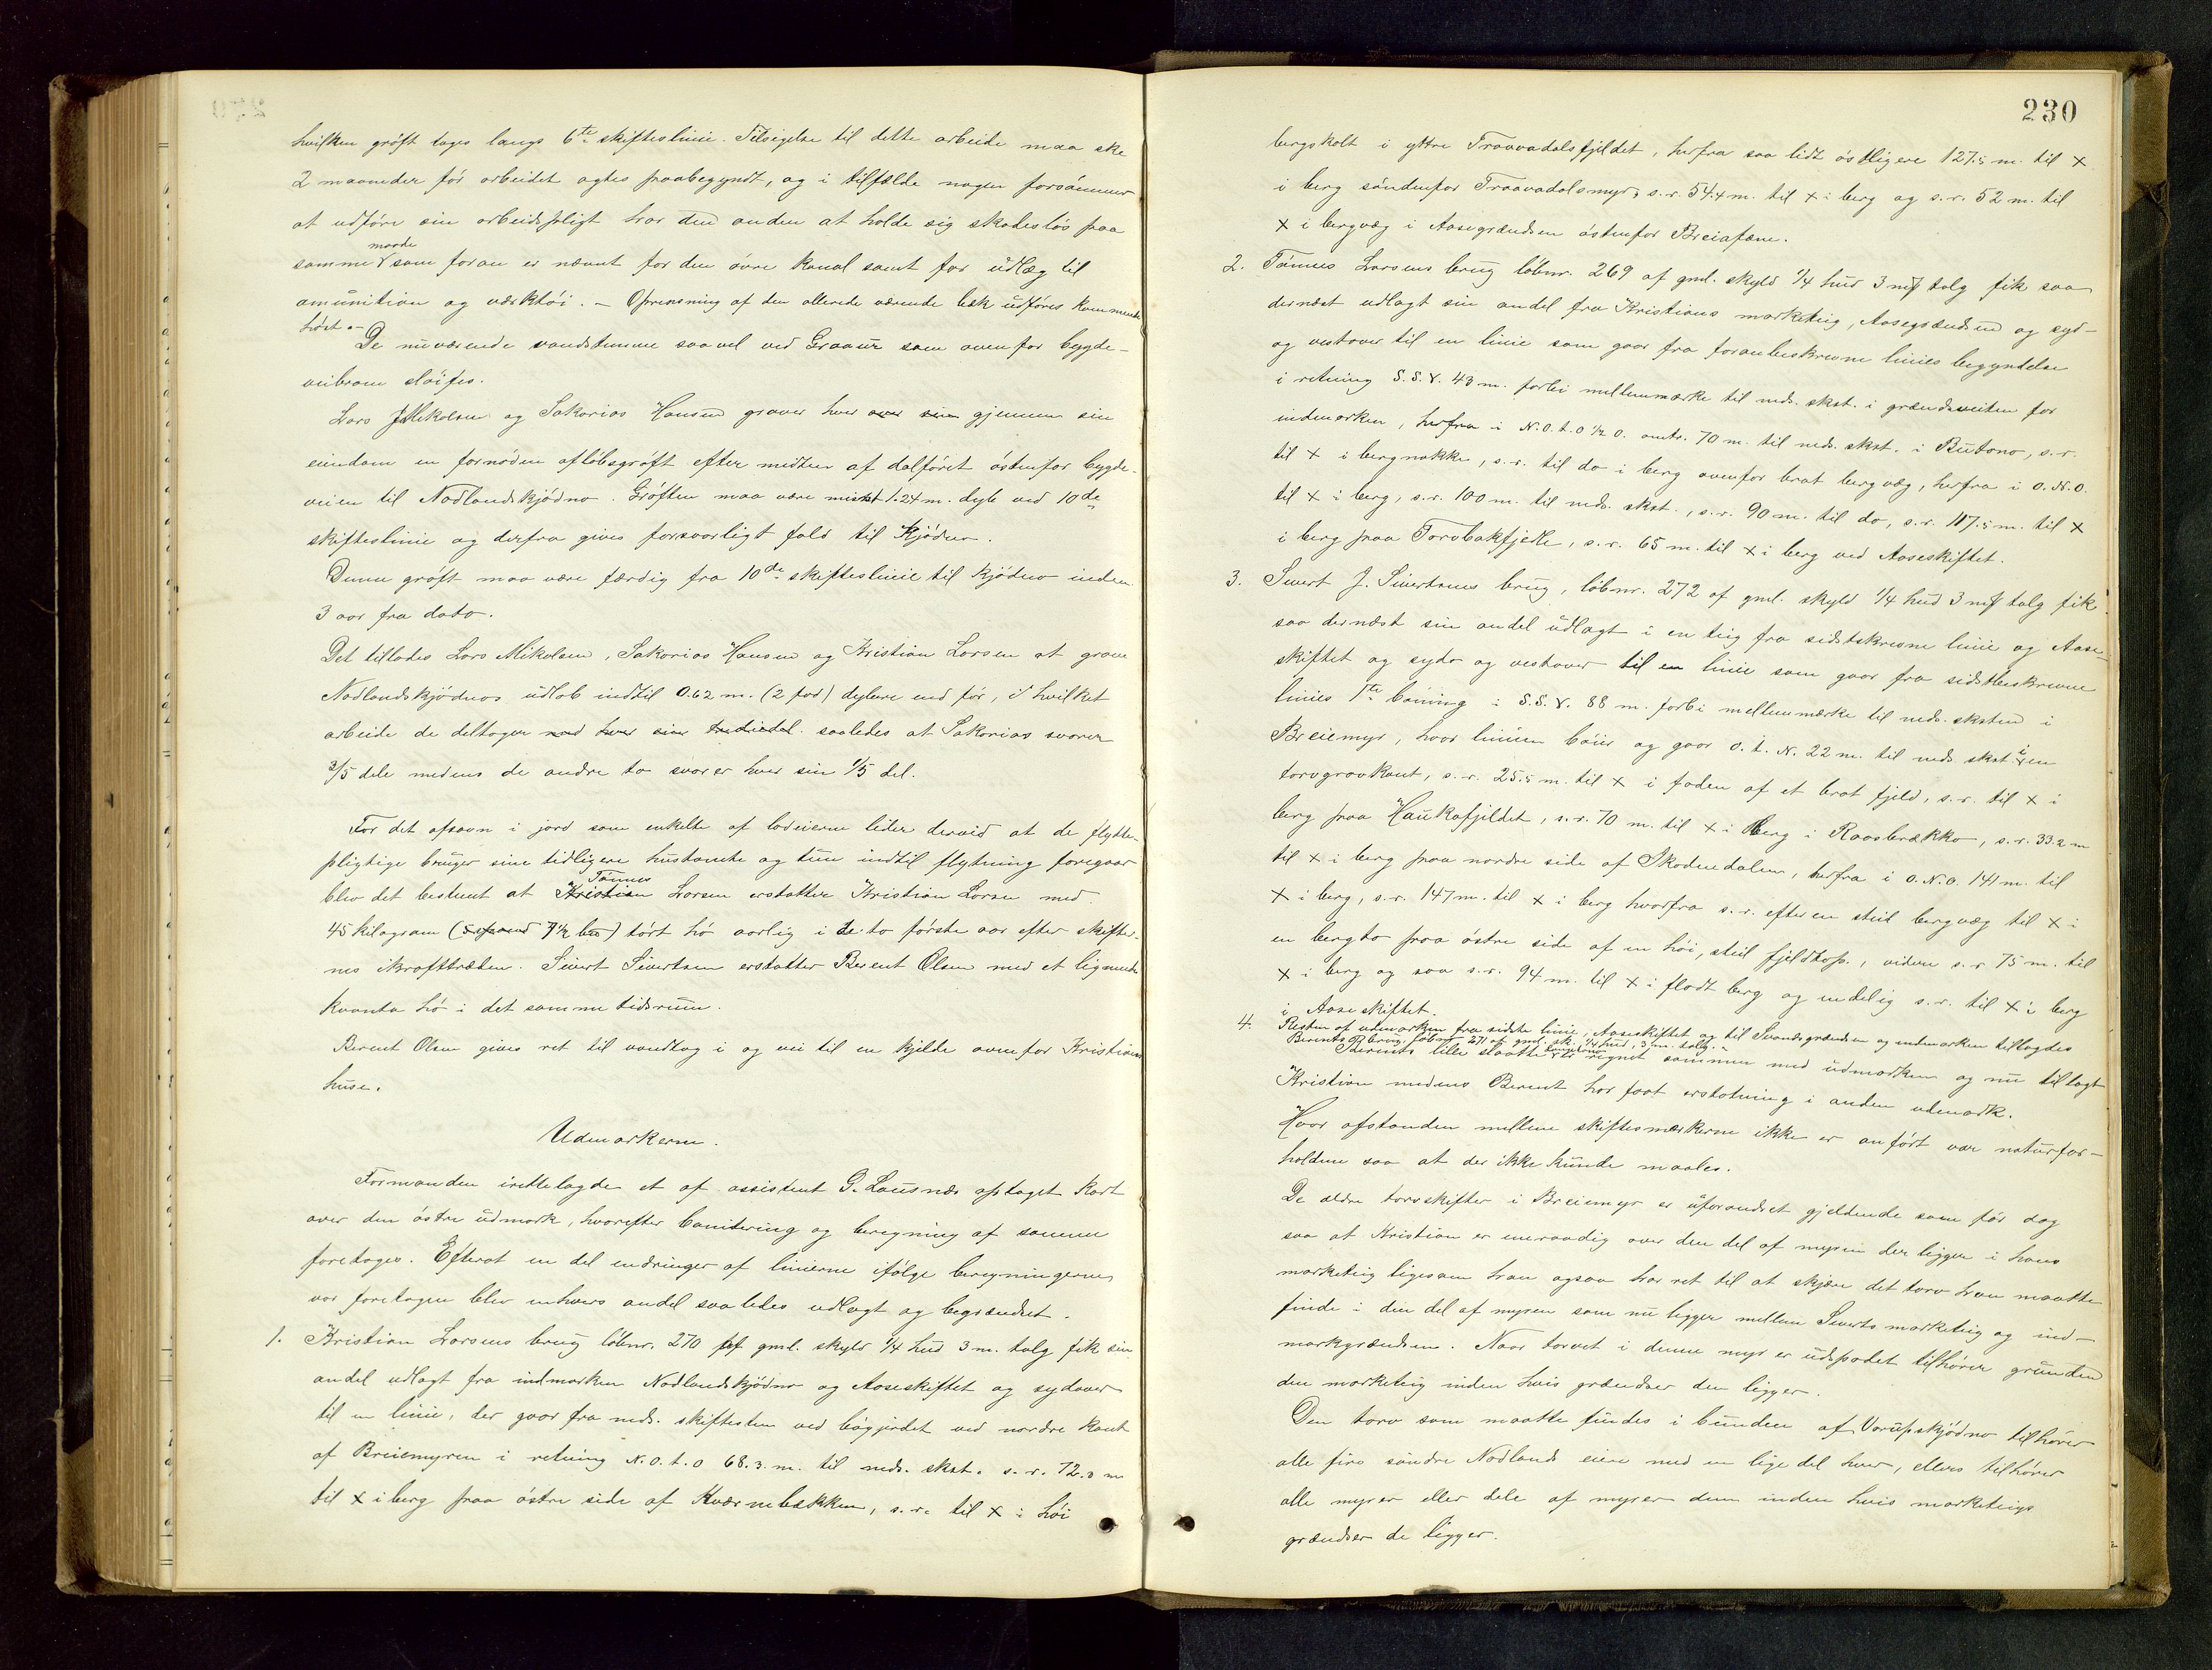 hvilken grøft tages langs 6te skifteslinie. Tilsigelse til dette arbeide maa ske
2 maaneder før arbeidet agtes paabegyndt, og i tilfælde nogen forsømmer
at udføre sin arbeidspligt har den anden at holde sig skadesløs paa
samme maade som foran er nævnt for den øvre kanal samt for udlæg til
amunition og værktøi. – Oprensning af den allerede værende bæk udføres kommende
høst. –
De nuværende vandstemme saavel ved Graaur som ovenfor bygde-
veibroen sløifes.
Lars Mikalsen og Sakarias Hansen graver hver over sin gjennem sin
eiendom en fornøden afløbsgrøft efter midten af dalføret østenfor bygde-
veien til Nodlandskjødno. Grøften maa være mindst 1.24 m. dyb ved 10de
skifteslinie og derfra gives forsvarligt fald til Kjødno.
Denne grøft maa være færdig fra 10de skifteslinie til kjødno inden
3 aar fra dato.
Det tillades Lars Mikalsen, Sakarias Hansen og Kristian Larsen at grave
Nodlandskjødnos udløb indtil 0.62 m. (2 fod) dybere end før, i hvilket
arbeide de deltager med hver sin trediedel. saaledes at Sakarias svarer
3/5 dele medens de andre to svarer hver sin 1/5 del.
For det afsavn i jord som enkelte af lodeierne lider derved at de flytte-
pligtige bruger sine tidligere hustomte og tun indtil flytning foregaar
blev det bestemt at Kristian Tønnes Larsen erstatter Kristian Larsen med
45 kilogram (2 spand 7 1/2 bro) tørt hø aarlig i de to første aar efter skifter-
nes ikrafttræden. Sivert Sivertsen erstatter Berent Olsen med et lignende
kvanta hø i det samme tidsrum.
Berent Olsen gives ret til vandtag i og vei til en kjilde ovenfor Kristians
huse.
Udmarkerne.
Formanden irettelagde et af assistent G. Lausnes optaget Kart
over den østre udmark, hvorefter bonitering og beregning af samme
foretoges. Efterat en del endringer af linierne ifølge beregningerne
var foretagen blev enhvers andel saaledes udlagt og begrændset.
1. Kristian Larsens brug løbnr. 270 af gml. skyld 1/4 hud 3 m. talg fik sin
andel udlagt fra indmarken Nodlandskjødno og Aaseskiftet og sydover
til en linie, der gaar fra neds. skiftesten ved bøgjerdet ved nordre kant
af Breiemyren i retning N.O.t.O 68.3. m. til neds. skst. s. r. 72.3 m
til x i berg paa østre side af Kværnebækken, s. r. til x i høi
230
bergskolt i yttre Traavadalsfjeldet, herfra saa lidt østligere 127.5 m. til x
i berg søndenfor Traavadalsmyr, s. r. 54.4 m. til x i berg og s. r. 52 m. til
x i bergvæg i Aasegrændsen østenfor Breiafæne.
2. Tønnes Larsens brug løbnr. 269 af gml. skyld 1/4 hud 3 m talg fik saa
dernæst udlagt sin andel fra Kristians marketeig, Aasegrændsen og syd-
og vestover til en linie som gaar fra foranbeskrevne linies begyndelse
i retning S.S.V. 43 m. forbi mellemmærke til neds. skst. i grændseveiten for
indmarken, herfra i N.O.t.O 1/2 O. omtr. 70 m. til neds. skst. i Butono, s. r.
til x i bergnakke, s. r. til do i berg ovenfor brat bergvæg, herfra i O.N.O.
til x i berg, s. r. 100 m. til neds. skst., s. r. 90 m. til do, s. r. 117.5 m. til x
i berg paa Torvbakfjelle, s. r. 65 m. til x i berg ved Aaseskiftet.
3. Sivert J. Sivertsens brug, løbnr. 272 af gml. skyld 1/4 hud 3 m talg fik
saa dernæst sin andel udlagt i en teig fra sidstbeskrevne linie og Aase-
skiftet og syd- og vestover til en linie som gaar fra sidstbeskrevne
linies 1ste bøining i S.S.V. 88 m. forbi mellemmærke til neds. sksten i
Breiemyr, hvor linien bøier og gaar O. t. N. 22 m. til neds. skst. i en
torvgravkant, s. r. 25.5 m. til x i foden af et brat fjeld, s. r. til x i
berg paa Haukafjeldet, s. r. 70 m. til x i berg i Raasbrækko, s. r. 33.2 m
til x i berg paa nordre side af Skodnedalen, herfra i O.N.O. 141 m. til
x i berg, s. r. 147 m. til x i berg hvorfra s. r. efter en steil bergvæg til x i
en bergto paa østre side af en høi, steil fjeldtop., videre s. r 75 m. til
x i berg og saa s. r. 94 m. til x i fladt berg og endelig s. r. til x i berg
i Aaseskiftet.
4. Resten af udmarken fra sidste linie, Aaseskiftet og til Svandsgrændsen og indmarken tillagdes
Berents brug løbnr 271 af gml. sk. 1/4 hud, 3 m. talg.
Berents lille slaatte er regnet sammen med udmarken og nu tillagt
Kristian medens Berent har faat erstatning i anden udmark.
Hvor afstanden mellem skiftesmærkerne ikke er anført var naturfor-
holdene saa at der ikke kunde maales.
De ældre torvskifter i Breiemyr er uforandret gjeldende som før dog
saa at Kristian er eneraadig over den del af myren der ligger i hans
marketeig ligesom han ogsaa har ret til at skjære det torv han maatte
finde i den del af myren som nu ligger mellem Siverts marketeig og ind-
markgrændsen. Naar torvet i denne myr er udspadet tilhører grunden
den marketeig inden hvis grændser den ligger.
Den torv som maatte findes i bunden af Vorupskjødno tilhører
alle fire søndre Nodlands eiere med en lige del hver, ellers tilhører
alle myrer eller dele af myrer dem inden hvis marketeigs
grændser de ligger.